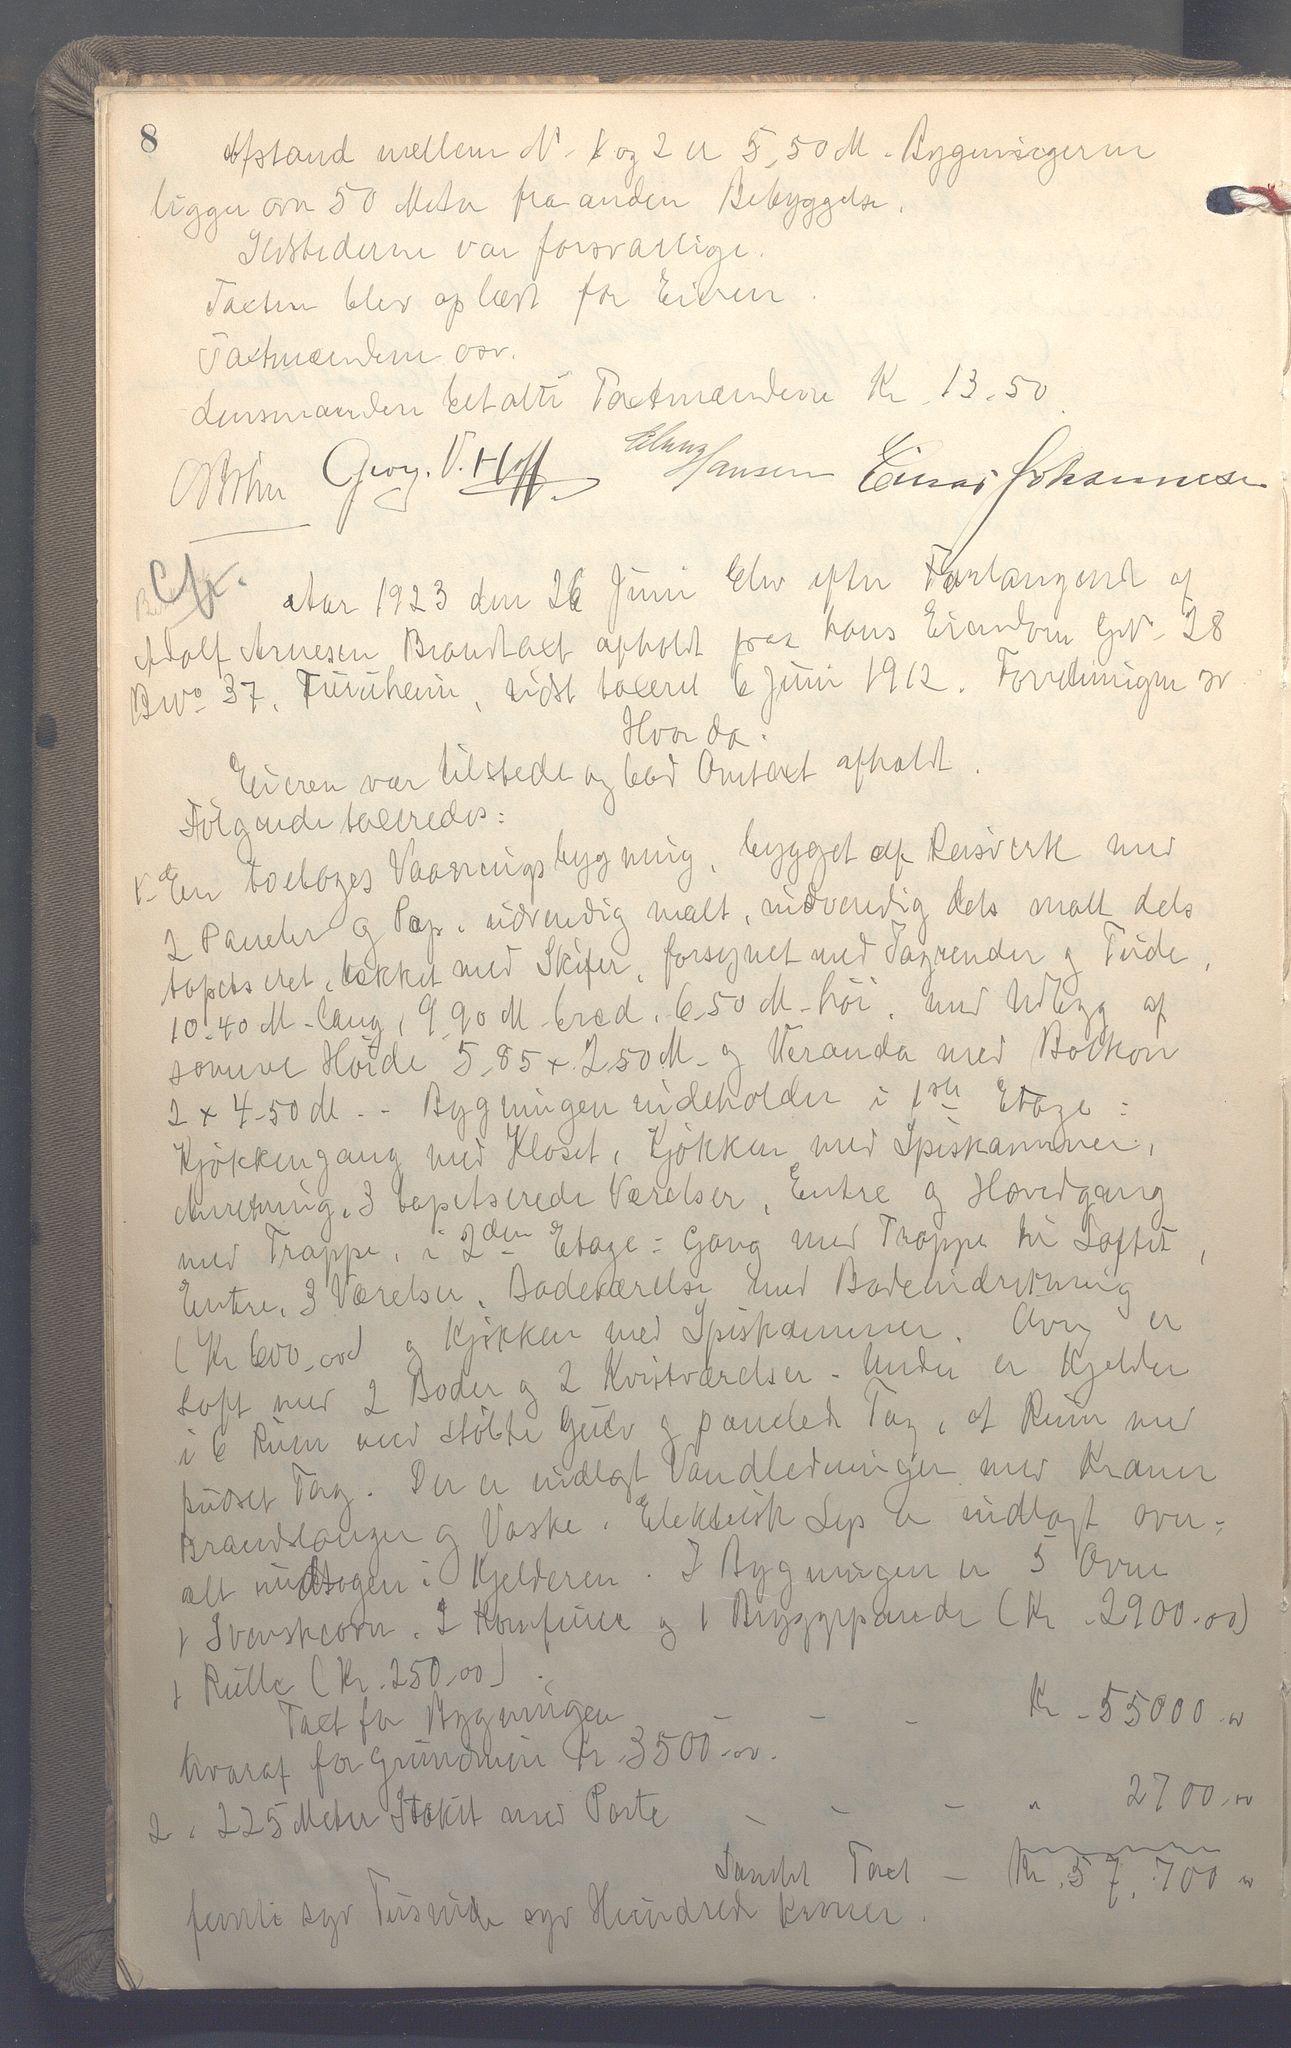 8
Afstand mellem N. 1 og 2 er 5,50 M. Bygningerne
ligger over 50 Meter fra anden Bebyggelse.
Ildstederne var forsvarlige.
Taxten blev oplæst for Eieren.
Taxtmændene osv.
Lensmanden betalte Taxtmændene Kr. 13.50
Georg. V. Hoff Hansen Einar Johannesen
Aar 1923 den 26 Juni blev efter Forlangende af
Adolf Arnesen Brandtaxt afholdt paa hans Eiendom GNo. 28
BNo 37, Furuheim, sidst taxeret 6 Juni 1912. Forretningen
Hvorda.
Eieren var tilstede og bad Omtaxt afholdt.
Følgende taxeredes:
1. En toetages Vaaningsbygning, bygget af Reisverk med
2 Paneler og Pap, udvendig malt, indvendig dels malt dels
tapetseret, tækket med Skifer, forsynet med Tagrender og Türde,
10.40 M. lang, 9.90 M. bred, 6.50 M. høi, med Udbygg af
samme Høide 5.85 x 2.50 M. og Veranda med Balkon
2 x 4.50 M. - Bygningen indeholder i 1ste Etage:
Kjøkkengang med Kloset, Kjøkken med Spiskammer,
Anretning, 3 tapetserede Værelser, Entre og Hovedgang
med Trappe, i 2den Etage: Gang med Trappe til Loftet,
Entre, 3 Værelser, Badeværelse med Badeindretning
(Kr 600.00) og Kjøkken med Spiskammer. Over er
Loft med 2 Boder og 2 Kvistværelser. Under er Kjelder
i 6 Rum med støbte Gulv og panelede Tag, et Rum med
pudset Tag. Der er indlagt Vandledninger med Kraner
Brandslanger og Vaske. Elektrisk Lys er indlagt over-
alt undtagen i Kjelderen. I Bygningen er 5 Ovne
1 Svenskeovn, 2 Komfurer og 1 Bryggepande (Kr. 2900.00)
1 Rulle (Kr. 250.00).
Taxt for Bygningen - - - Kr. 55000.00
hvoraf for Grundmur Kr. 3500.00.
2. 225 Meter Stakit med Porte - - - " 2700.00
Samlet Taxt - Kr. 57.700.00
femti syv Tusinde syv Hundrede Kroner.